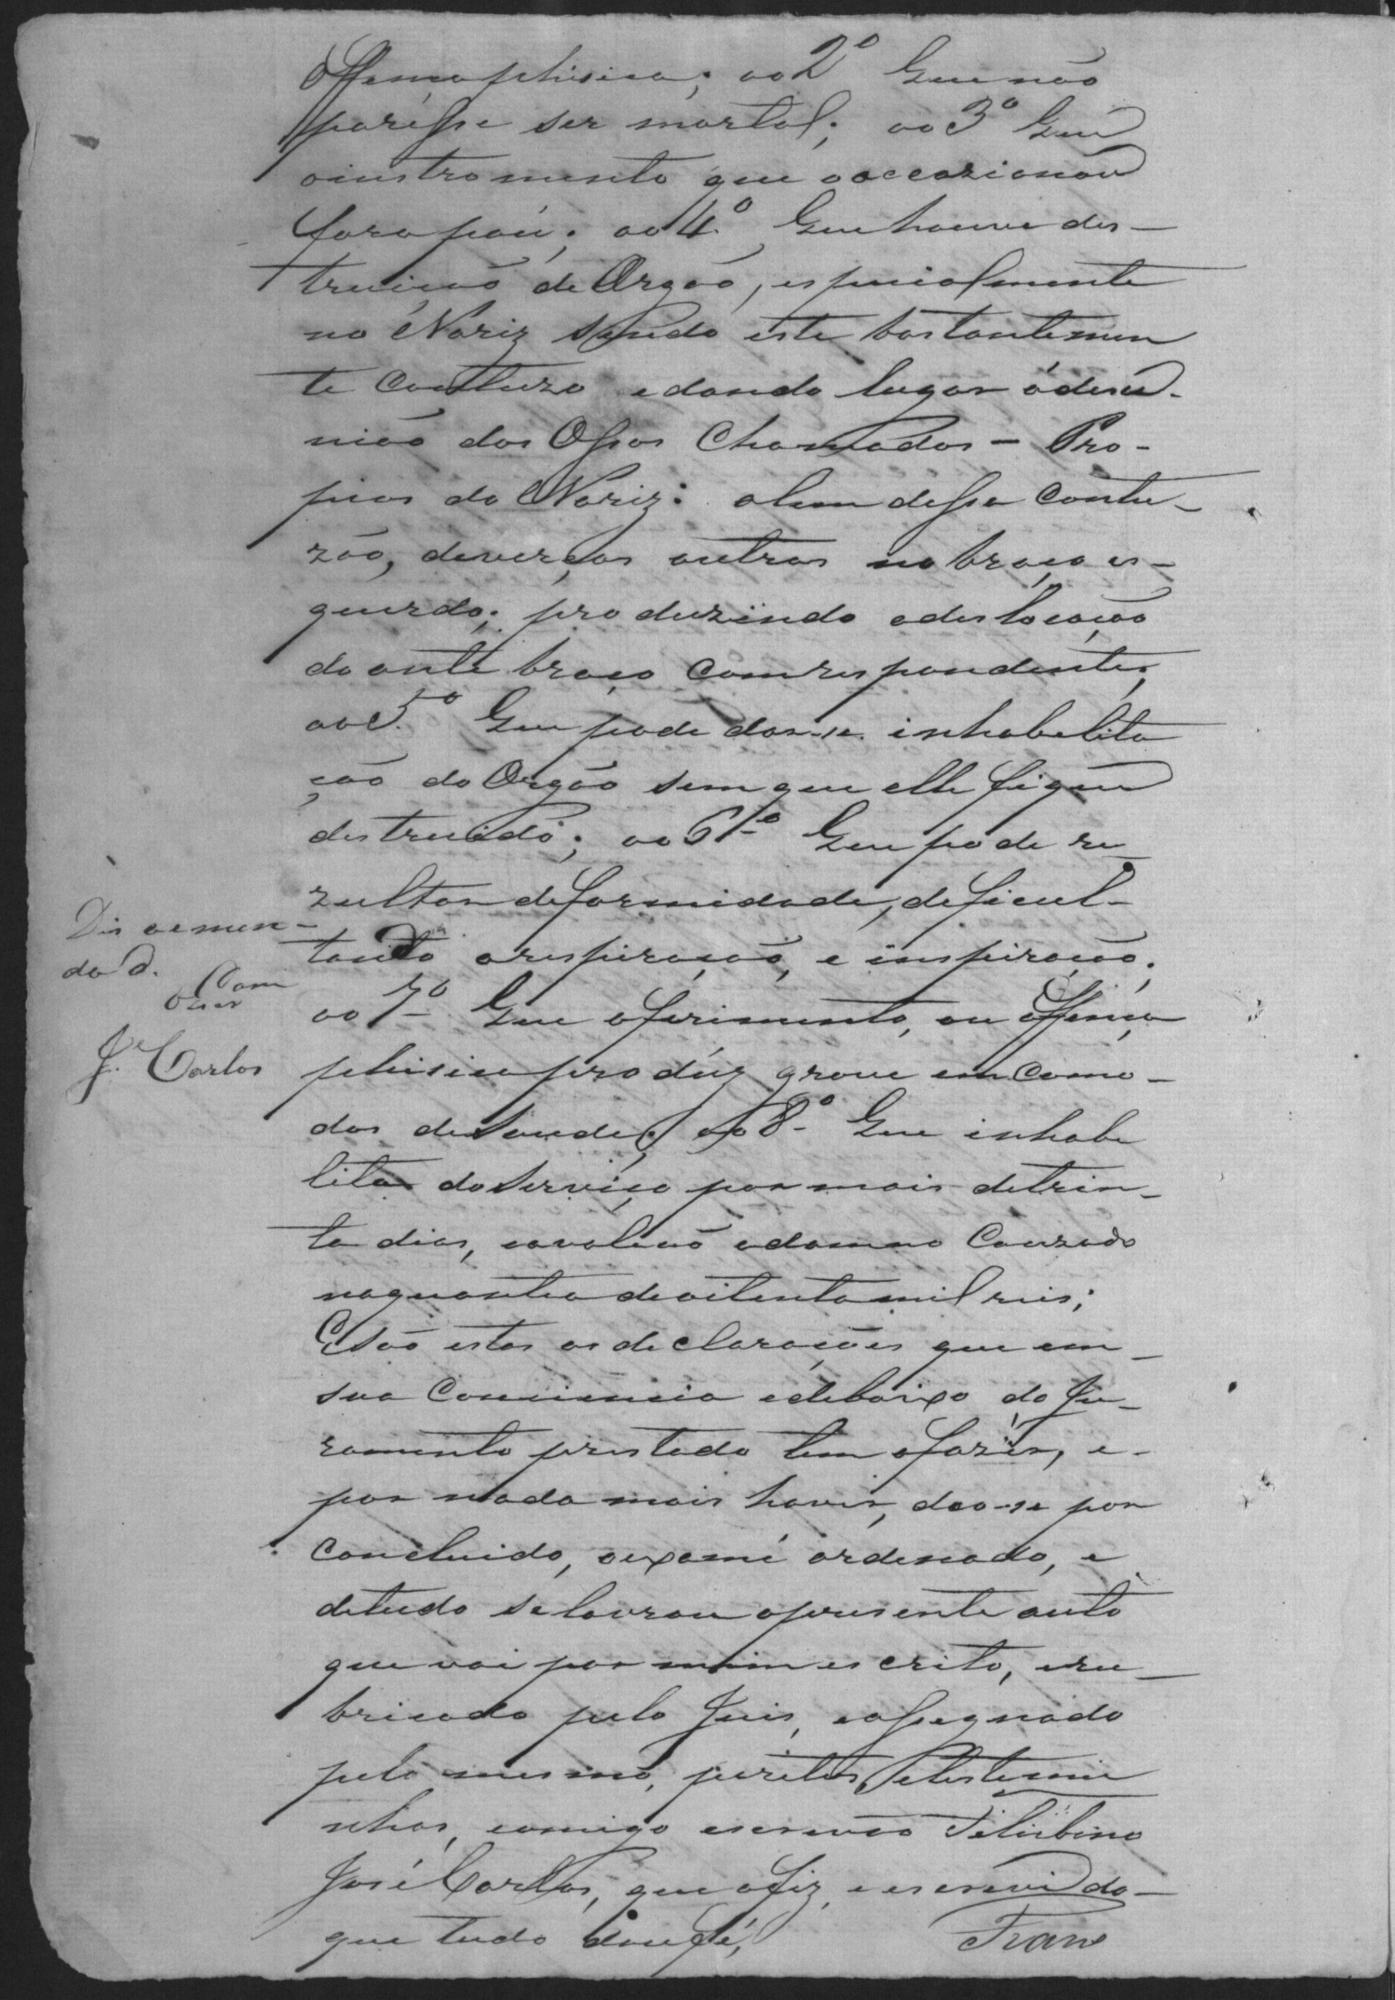 offença phisica; ao 2º Que não
paresse ser mortal; ao 3º Que
o instromento que o occazionou
fora páu; ao 4º Que houve des-
truição de Orgão, especialmente
no Nariz sendo este bastantemen
te contuzo e dando lugar á desu-
nião dos Ossos chamados - Pro-
pios do Nariz: alem dessa contu-
zão, deverças outras no braço es-
querdo; produzindo a deslocação
do ante braço comrespondente;
ao 5º Que pode dar-se inhabelita
ção do Orgão sem que elle fique
destruido; ao 6º Que pode re
zultar deformidade, deficul-
tando a respiração, e inspiração;
ao 7º Que o ferimento, ou offença
phisica prodúz grave emcomo-
dos de saude; ao 8º Que inhabe
lita do serviço por mais de trin-
ta dias, e avalião o damno cauzado
na quantia de oitenta mil reis;
E são estas as declarações que em
sua Conciencia e debaixo do Ju-
ramento prestado tem a fazer, e
por nada mais haver, deo-se por
concluido, o exame ordenado, e
de tudo se lavrou o presente auto
que vai por mim escrito, e ru-
bricado pelo Juis, e assegnado
pelo mesmo, peritos, e testemu
nhas, comigo escrivão
José Carlos, que o fiz, e escrevi do
que tudo dou fé,
Fran
Dis a emen-
da d.
J. Carlos